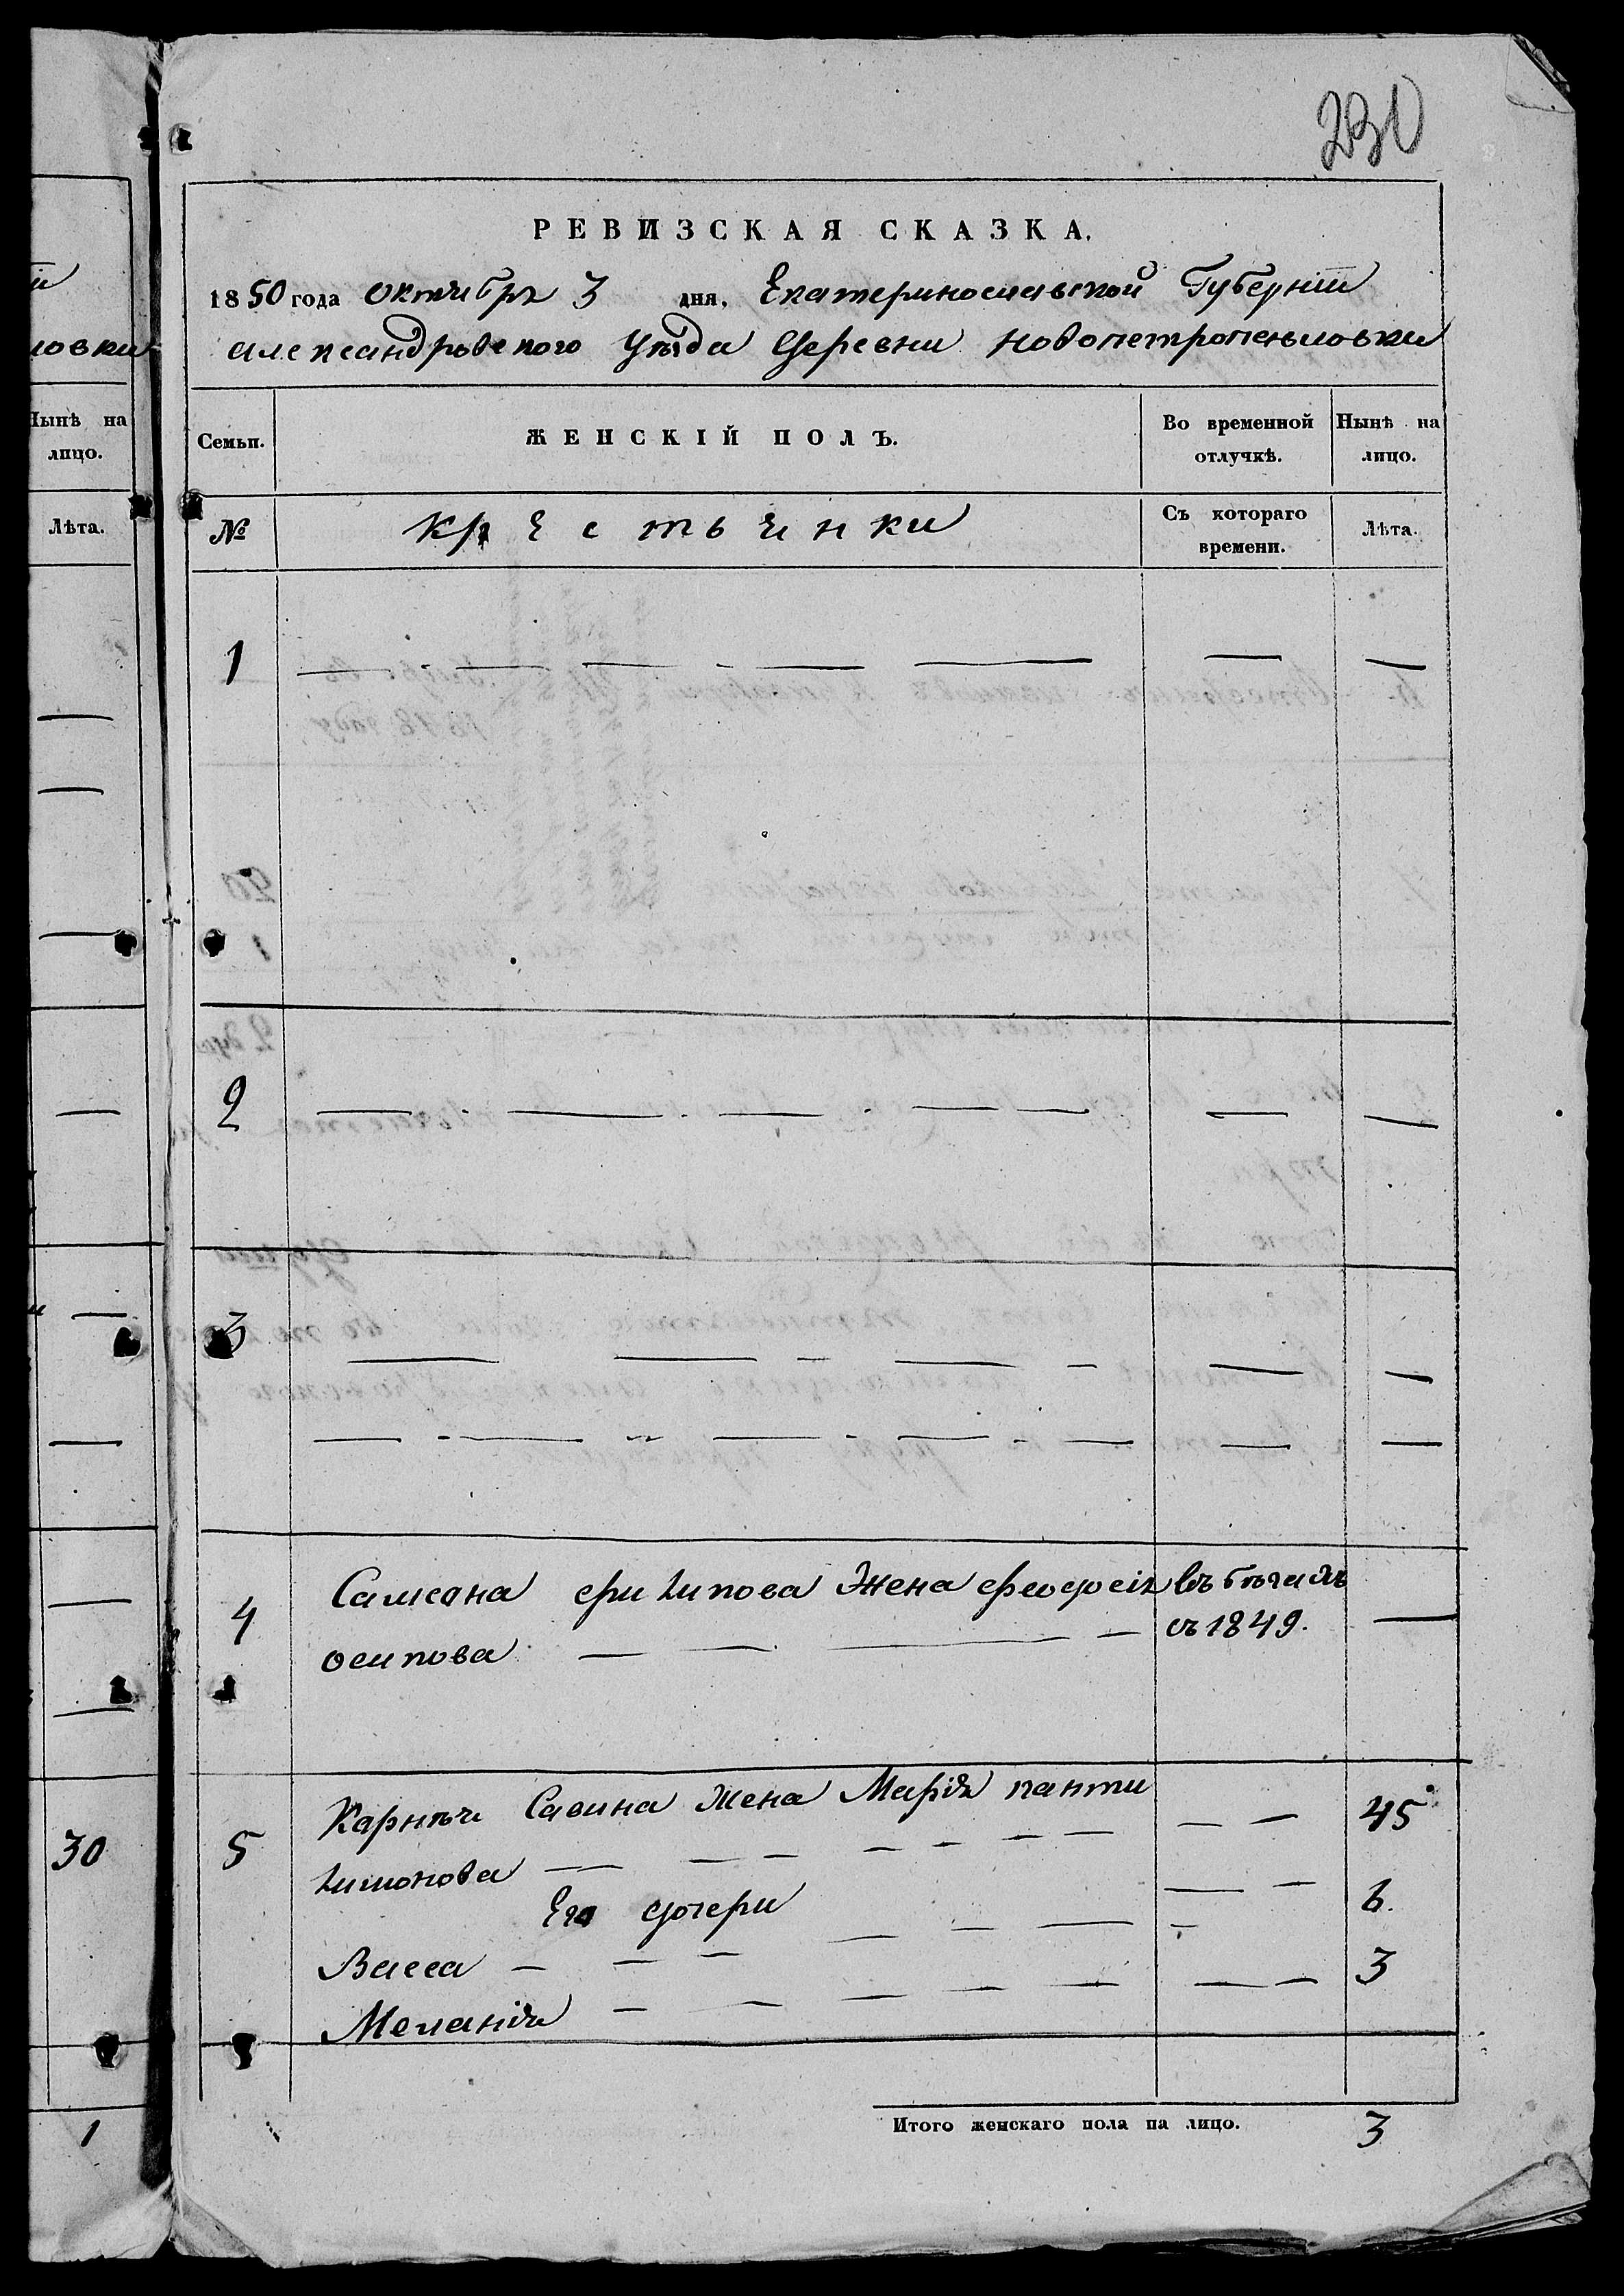 230
РЕВИЗСКАЯ СКАЗКА.
1850 года октября 3 дня, Екатеринославской Губерніи
Александровского Уезда Деревни Новопетропольловки
Семьи. ЖЕНСКІЙ ПОЛЪ. Во временной отлучкѣ. Нынѣ на лицо.
№ Крестьянки Съ котораго времени. Лѣта.
1
2
3
4 Самсона Филипова Жена Феодосія въ бегахъ
осипова съ 1849.
5 Карнѣя Савина Жена Марія панти 45
лимонова
Его дочери 6.
Васса 3
Меланія
Итого женскаго пола на лицо. 3
ловки
Нынѣ на
лицо.
Лѣта.
30
1